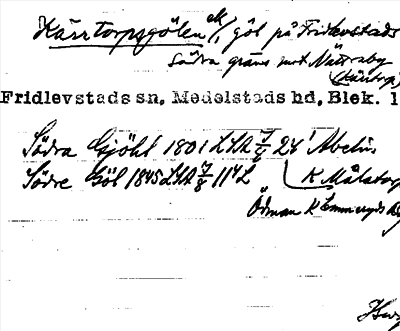 Kärrtorpsgölen ek/, göl på Fridlevstads
Södra gräns mot Nättraby
(Kärrtorp)
Fridlevstads sn, Medelstads hd, Blek. l
Södra Gjöhl 1801 LSA 7/6 24
Södre Göl 1845 LSA 7/8 114 L K Målatorp
Ödman K